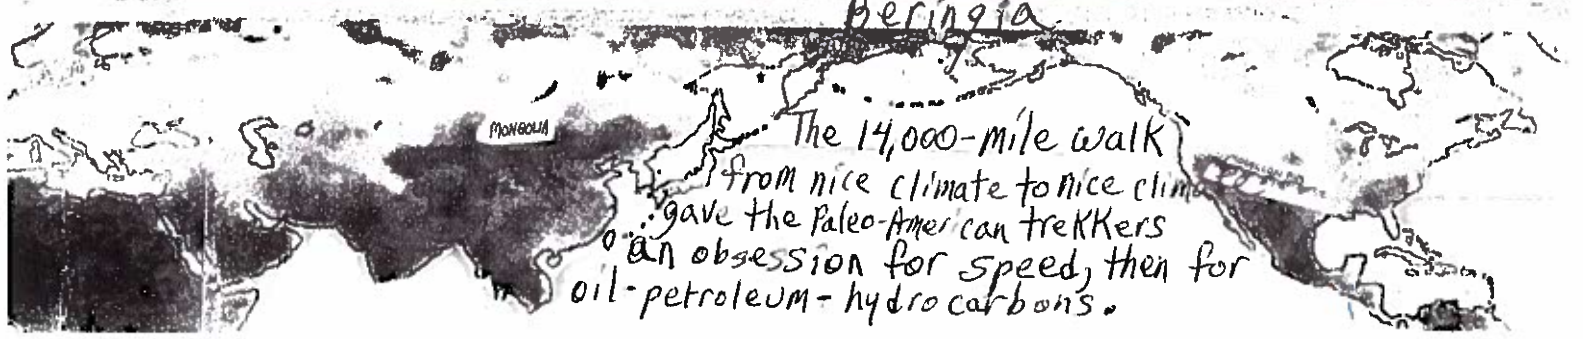 Beringia
MONGOLIA
The 14,000-mile walk
from nice climate to nice clima
gave the Paleo-American treKKers
an obsession for speed, then for
oil-petroleum-hydrocarbons.